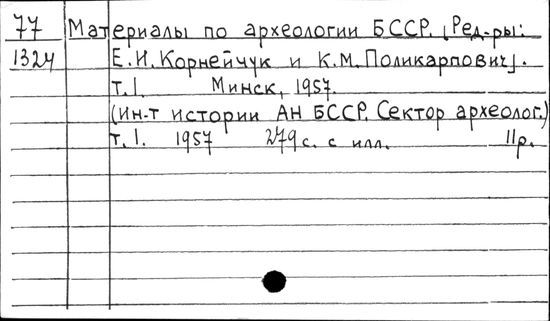 77 Материалы по археологии БССР. [Ред-ры:
1324 Е.И. Корнейчук и К.М. Поликарпович].
т.1. Минск, 1957.
(ин-т истории АН БССР. Сектор археолог.)
т.1. 1957 279 с. с илл. 11р.